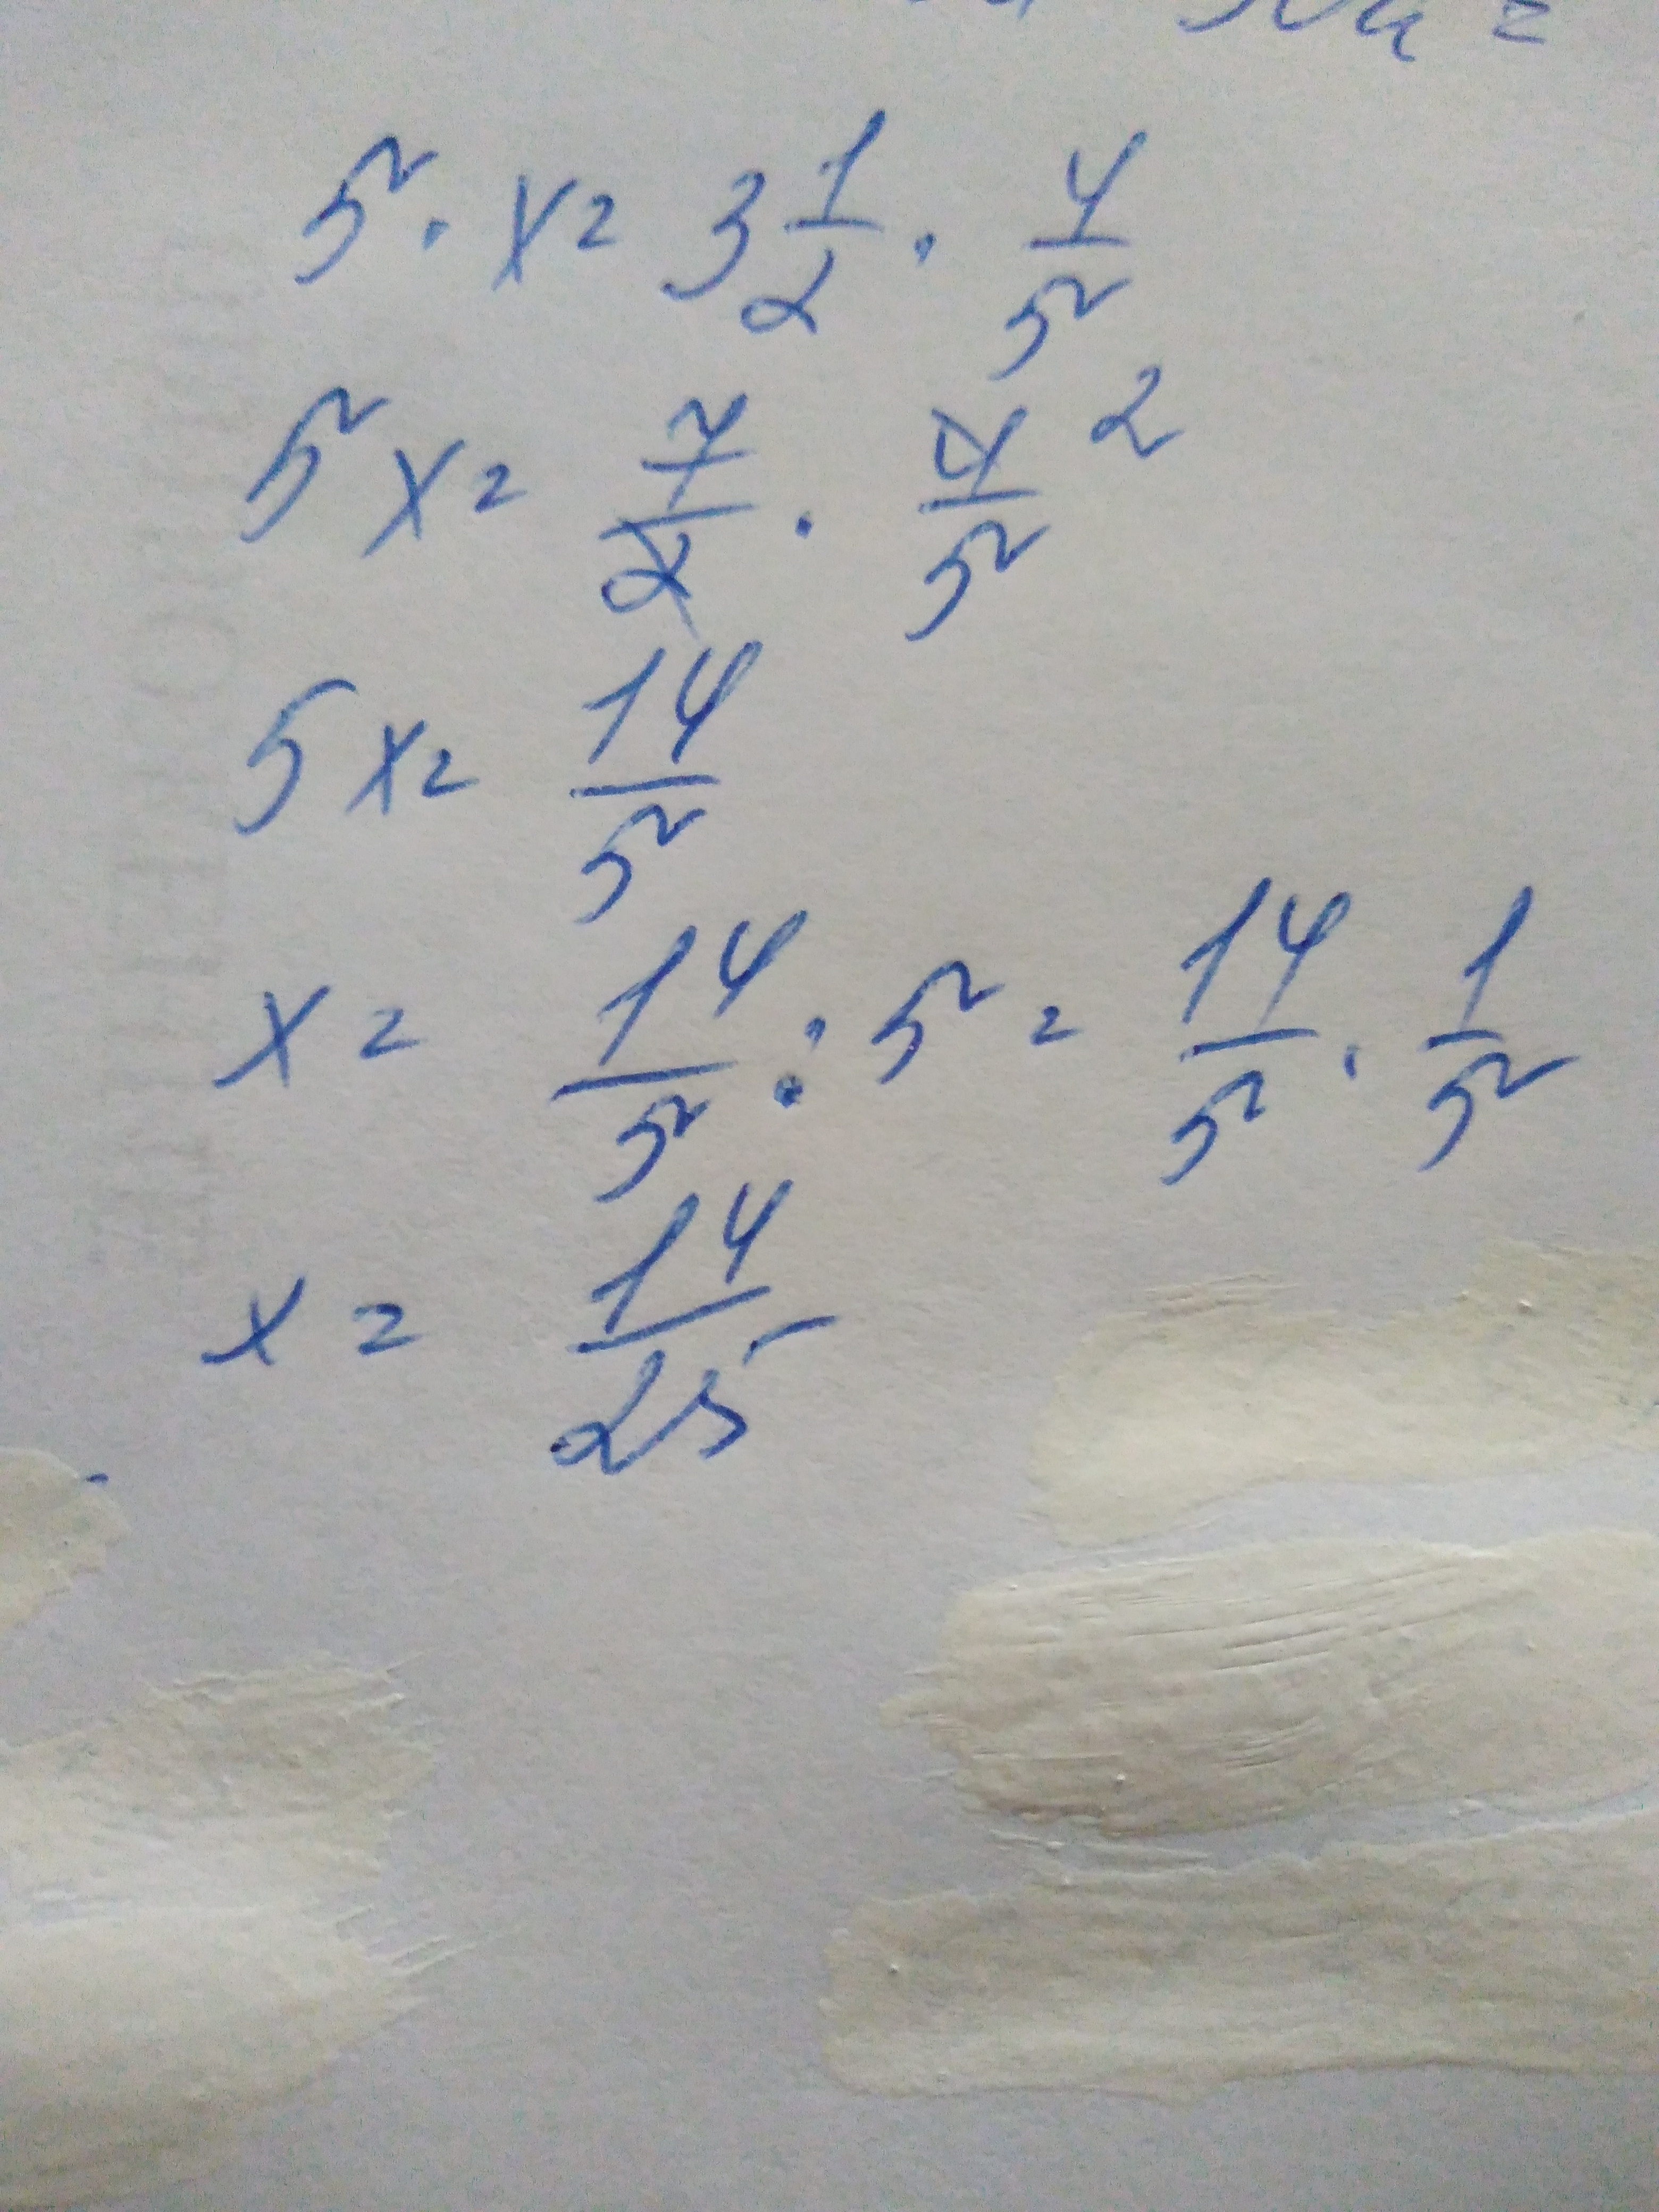 5 · x = 3 1/2 · 4/5
5x = 7/2 · 4/5 2
5x = 14/5
x = 14/5 : 5 = 14/5 · 1/5
x = 14/25